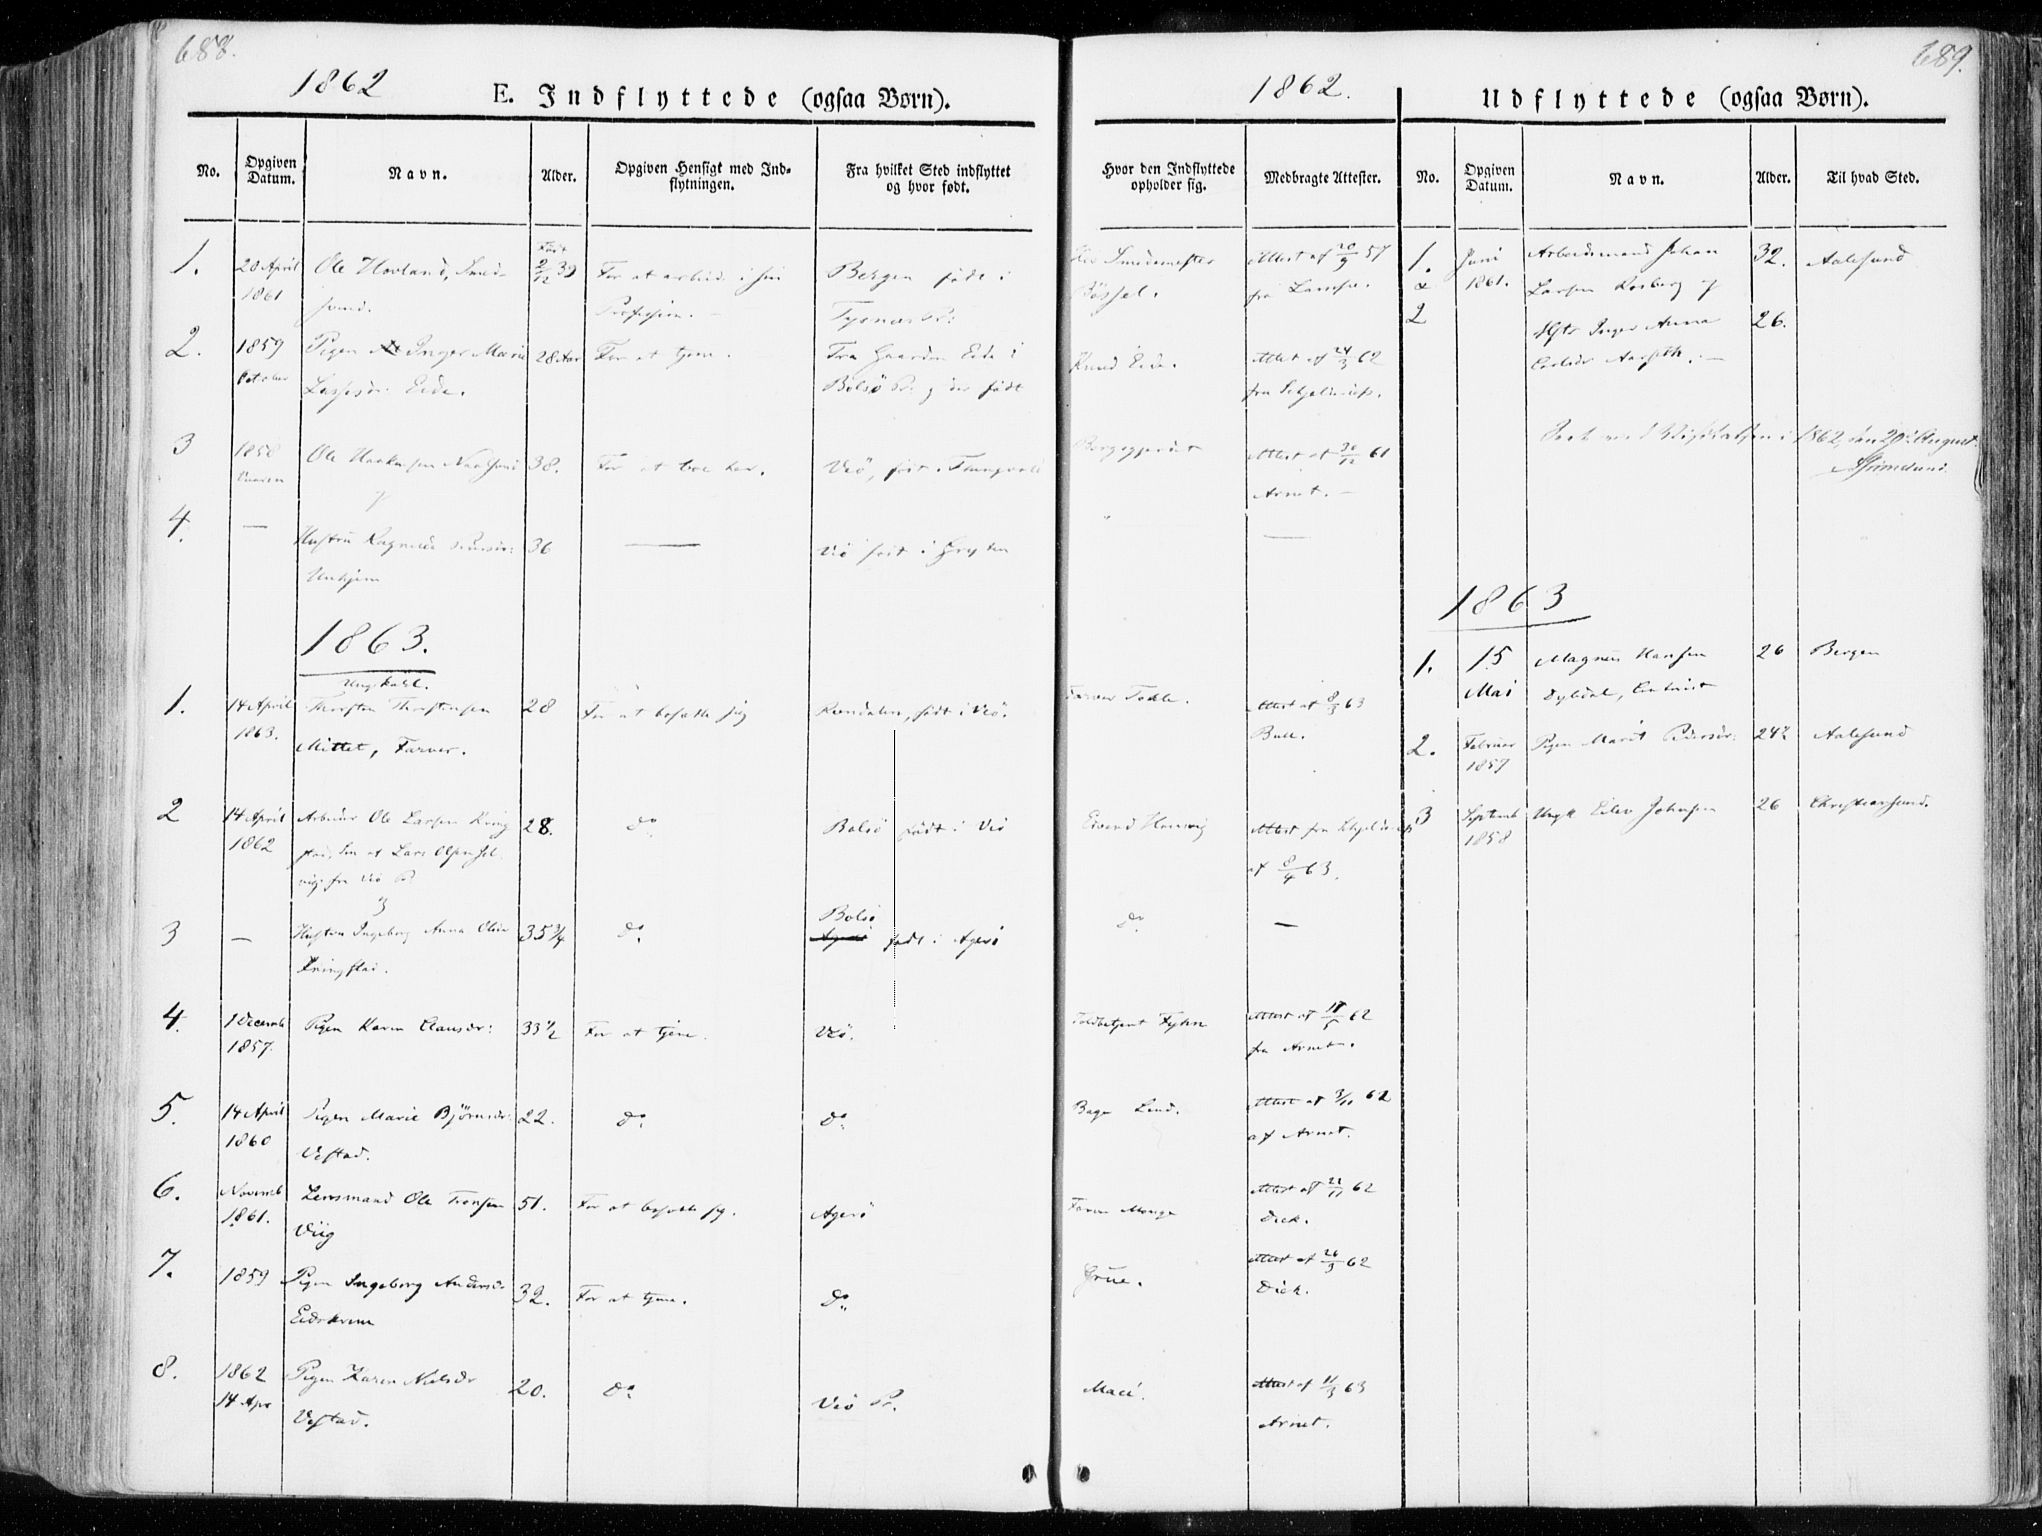 688.
1862
E. Indflyttede (ogsaa Børn).
No.
Opgiven Datum.
Navn.
Alder.
Opgiven Hensigt med Indflytningen.
Fra hvilket Sted indflyttet og hvor født.
1.
20 April
1861
Ole Hovland, Smed-
Født 2/12 39
For at arbeide i sin
Profession.
Bergen født i
2.
1859
October
Pigen Inger Marie
Eide.
28 Aar
For at tjene.
Fra Gaarden Eide i
Bolsø P. og der født
3
1858
Ole
38.
For at boe her.
Veø, født i
4.
—
Hustru Ragnilde
36
—
Veø født i Grytten
1863.
1.
14 April
1863.
Ungkarl.
Thorsten Thorstensen
Mittet, Farver.
28
For at bosætte sig
Romdalen, født i Veø.
2
14 April
1862
Arbeider Ole Larsen Kring
stad, Søn af Lars Olsen Sol
vig fra Veø P.
og
28.
Do
Bolsø født i Veø
3
—
Hustru Ingeborg Anna Olsdr
Kringstad.
35 3/4
Do
Bolsø
født i Agerø
4.
1 Decemb
1857.
Pigen Karen Clausdr:
33 1/2
For at tjene.
Veø.
5.
14 April
1860
Pigen Marie Bjørnsdr:
Vestad.
22.
Do
Do
6.
Novemb
1861.
Lensmand Ole Tronsen
Viig
51.
For at bosætte sig.
Agerø
7.
1859
Pigen Ingeborg Andersdr
32.
For at tjene.
Do
8.
1862
14 Apr
Pigen Karen Nielsdr
Vestad.
20.
Do
Veø P.
689.
1862.
Hvor den Indflyttede opholder sig.
Medbragte Attester.
Hos Smedemester
Attest af 20/9 57
fra
Knud Eide.
Attest af 24/3 62
fra Schjelderup.
Attest af 30/12 61
Arnet. —
—
Farver Tokle.
Attest af 8/3 63
Bull.
Attest fra Schjelderup
af 8/4 63.
Do
—
Toldbetjent Fyhn
62
fra Arnet.
Bager Lund.
Attest af 3/11 62
af Arnet.
Attest af 22/11 62
Dick.
Grüe.
Attest af 26/3 62
Dick.
Macé.
Attest af 11/3 63
Arnet.
Udflyttede (ogsaa Børn).
No.
Opgiven Datum.
Navn.
Alder.
Til hvad Sted.
1.
&
2
Juni
1861.
Arbeidsmand Johan
Larsen Rosberg og
Inger Anna
32.
26.
Aalesund
i 1862, den 20. August
1863
1.
15
Mai
Magnus Hansen
26
Bergen
2.
Februar
1859
Pigen Marit Pedersdr:
24 1/2
Aalesund
3
Septemb
1858
Ungk Eilev Johnsen
26
Christiansund.